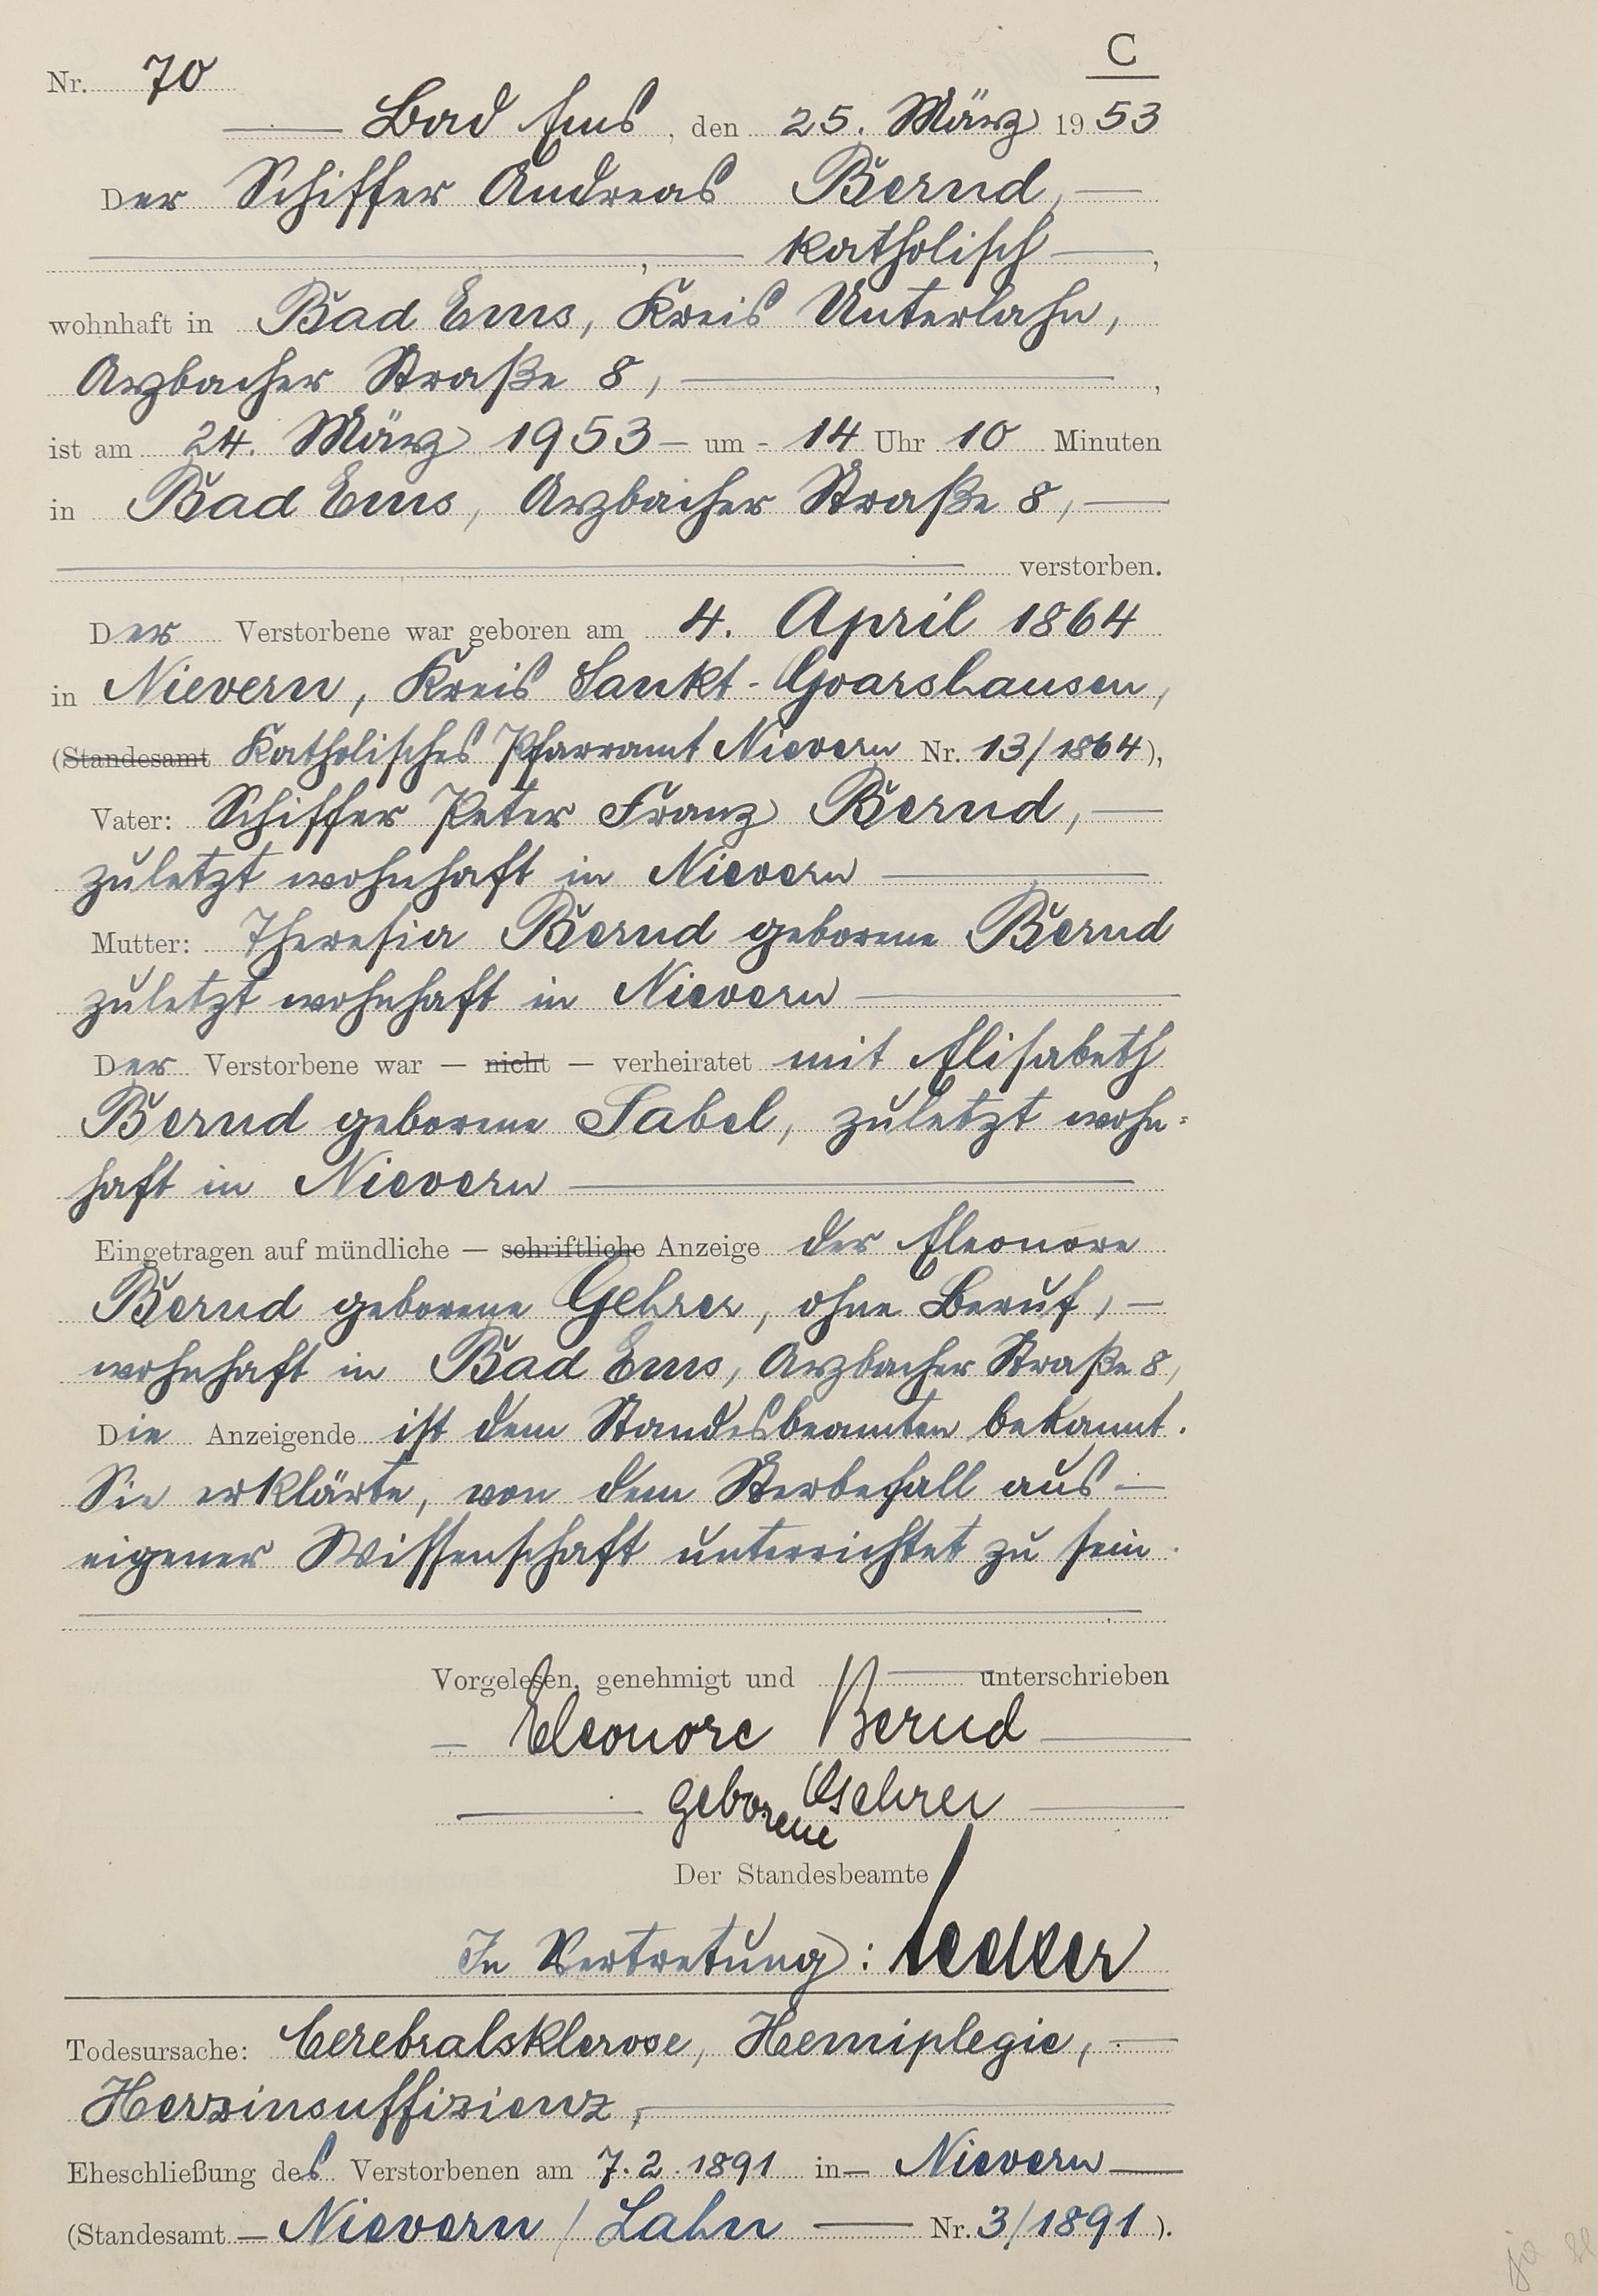 C
Nr. 70
Bad Ems, den 25. März 1953
Der Schiffer Andreas Bernd,
, katholisch,
wohnhaft in Bad Ems, Kreis Unterlahn,
Arzbacher Straße 8,
ist am 24. März 1953 um 14 Uhr 10 Minuten
in Bad Ems, Arzbacher Straße 8,
verstorben.
Der Verstorbene war geboren am 4. April 1864
in Nievern, Kreis Sankt-Goarshausen,
(Standesamt Katholisches Pfarramt Nievern Nr. 13/1864),
Vater: Schiffer Peter Franz Bernd,
zuletzt wohnhaft in Nievern
Mutter: Theresia Bernd geborene Bernd
zuletzt wohnhaft in Nievern
Der Verstorbene war — nicht — verheiratet mit Elisabeth
Bernd geborene Sabel, zuletzt wohn=
haft in Nievern
Eingetragen auf mündliche — schriftliche Anzeige der Eleonore
Bernd geborene Gehrer, ohne Beruf,
wohnhaft in Bad Ems, Arzbacher Straße 8,
Die Anzeigende ist dem Standesbeamten bekannt.
Sie erklärte, von dem Sterbefall aus
eigener Wissenschaft unterrichtet zu sein.
Vorgelesen, genehmigt und unterschrieben
Eleonore Bernd
geborene Gehrer
Der Standesbeamte
In Vertretung:
Todesursache: Cerebralsklerose, Hemiplegie,
Herzinsuffizienz,
Eheschließung des Verstorbenen am 7.2.1891 in Nievern
(Standesamt Nievern / Lahn Nr. 3/1891).